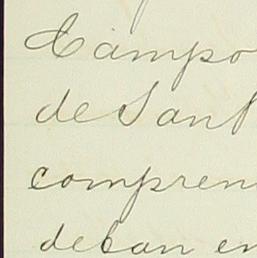 Campo
de Sant
compren
deban en